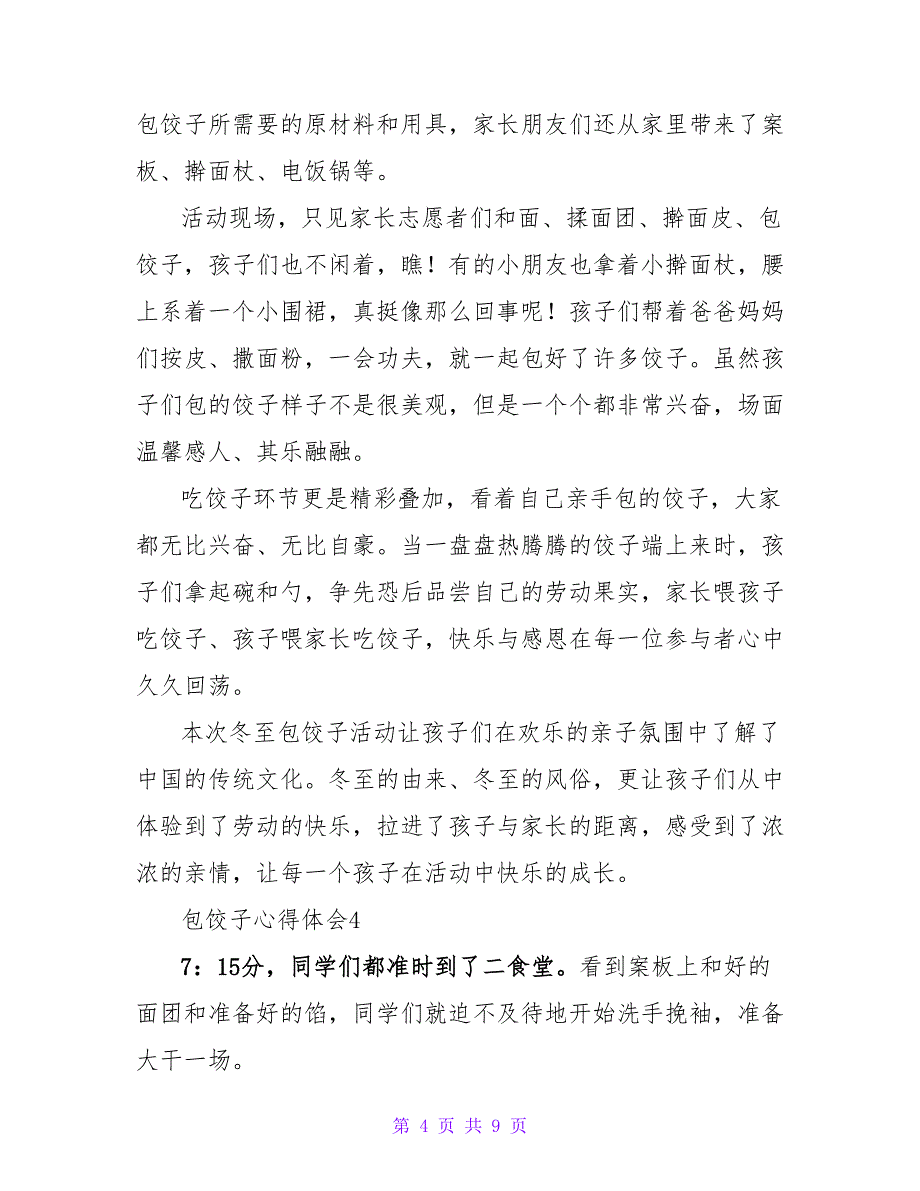 包饺子所需要的原材料和用具，家长朋友们还从家里带来了案
板、擀面杖、电饭锅等。
活动现场，只见家长志愿者们和面、揉面团、擀面皮、包
饺子，孩子们也不闲着，瞧！有的小朋友也拿着小擀面杖，腰
上系着一个小围裙，真挺像那么回事呢！孩子们帮着爸爸妈妈
们按皮、撒面粉，一会功夫，就一起包好了许多饺子。虽然孩
子们包的饺子样子不是很美观，但是一个个都非常兴奋，场面
温馨感人、其乐融融。
吃饺子环节更是精彩叠加，看着自己亲手包的饺子，大家
都无比兴奋、无比自豪。当一盘盘热腾腾的饺子端上来时，孩
子们拿起碗和勺，争先恐后品尝自己的劳动果实，家长喂孩子
吃饺子、孩子喂家长吃饺子，快乐与感恩在每一位参与者心中
久久回荡。
本次冬至包饺子活动让孩子们在欢乐的亲子氛围中了解了
中国的传统文化。冬至的由来、冬至的风俗，更让孩子们从中
体验到了劳动的快乐，拉进了孩子与家长的距离，感受到了浓
浓的亲情，让每一个孩子在活动中快乐的成长。
包饺子心得体会4
7：15分，同学们都准时到了二食堂。看到案板上和好的
面团和准备好的馅，同学们就迫不及待地开始洗手挽袖，准备
大干一场。
第 4 页 共 9 页